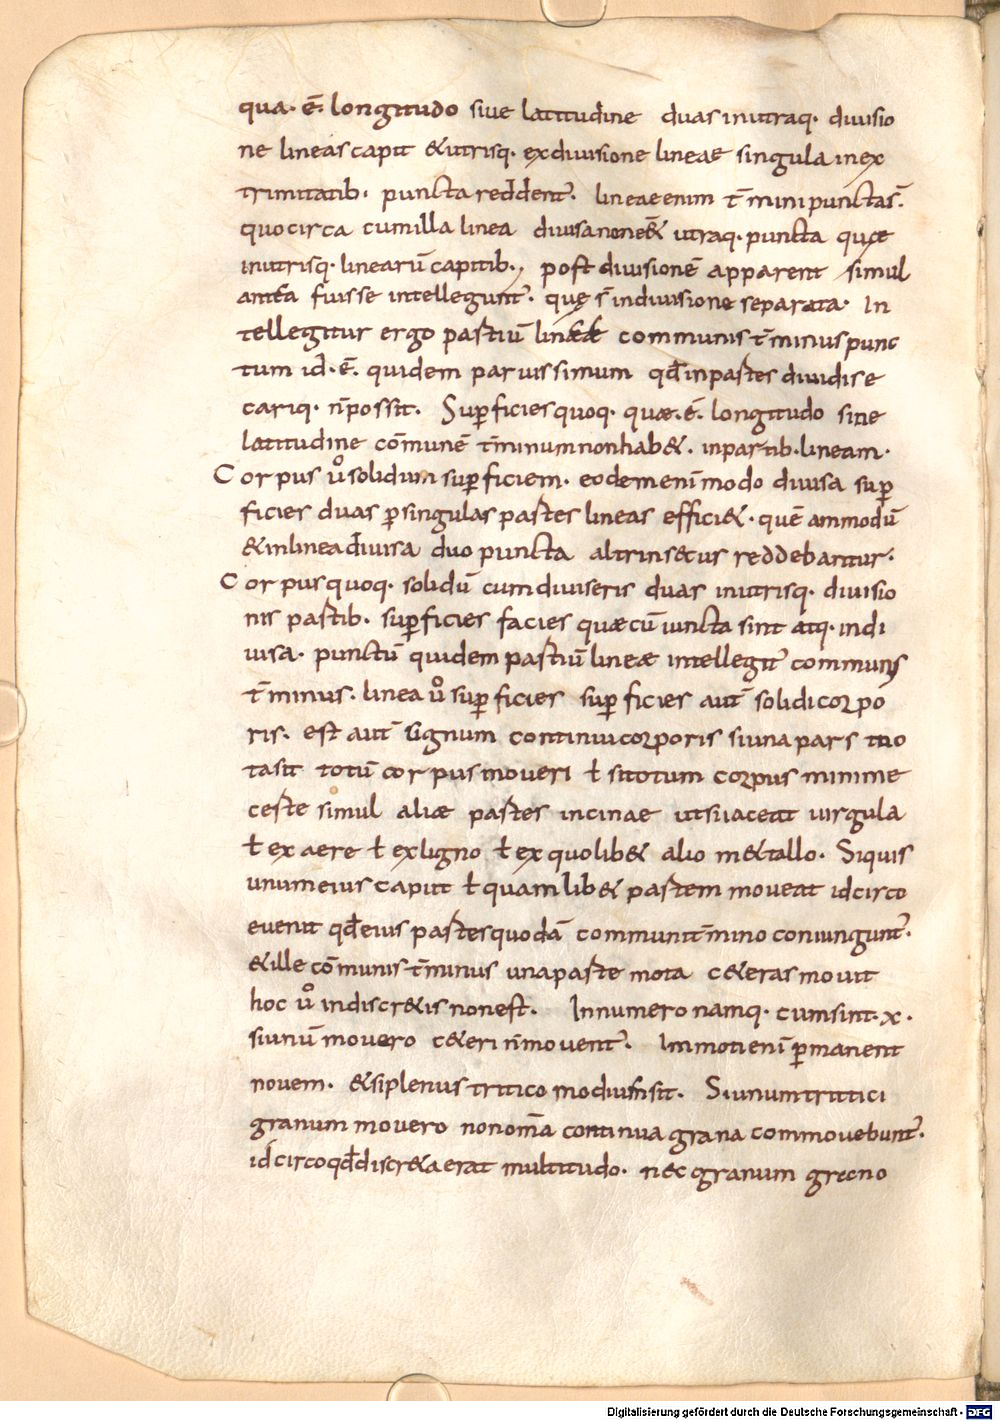 qua· ē· longitudo siue latitudine duas inutraq· diuisio
ne lineas capit & utrisq· ex diuisione lineae singula in ex
trimitatib· puncta reddent᷑· lineae enim t̄mini punctas̄·
quocirca cum illa linea diuisa non e͞& utraq· puncta quae
inutrisq· linearū capitib·, post diuisionē apparent simul
antea fuisse intellegunt᷑· quę s̄ in diuisione separata· In
tellegitur ergo partiū lineae communis t̄minus punc
tum id· ē· quidem paruissimum qđ in partes diuidi se
cariq· n̄ possit· Suꝑficies quoq· quae· ē· longitudo sine
latitudine cōmunē t̄minum non hab&· in partib· lineam·
Corpus uͦ solidum suꝑficiem· eodem eni᷑ modo diuisa suꝑ
ficies duas ꝑ singulas partes lineas effici&· quē ammodū
& in linea diuisa duo puncta altrinsecus reddebantur·
Corpus quoq· solidū cum diuiseris duas inutrisq· diuisio
nis partib· suꝑficies facies quae cū iuncta sint atq· indi
uisa· punctū quidem partiū lineae intellegit᷑ communis
t̄minus· linea uͦ suꝑficies suꝑficies aut̄ solidi corpo
ris· est aut̄ signum continui corporis si una pars mo
ta sit totū corpus moueri ł si totum corpus minime
certe simul aliae partes incinae ut si iaceat uirgula
ł ex aere ł ex ligno ł ex quolib& alio m&allo· Si quis
unum eius caput ł quam lib& partem moueat idcirco
euenit qđ eius partes quodā communi t̄mino coniungunt᷑·
& ille cōmunis t̄minus una parte mota c&eras mouit
hoc uͦ in discr&is non est· In numero namq· cum sint· x·
si unū mouero c&eri n̄ mouent᷑· Immoti eni᷑ ꝑmanent
nouem· & si plenus tritico modius sit· Si unum tritici
granum mouero non om̄a continua grana commouebunt᷑·
idcirco qđ discr&a erat multitudo· nec granum grecno